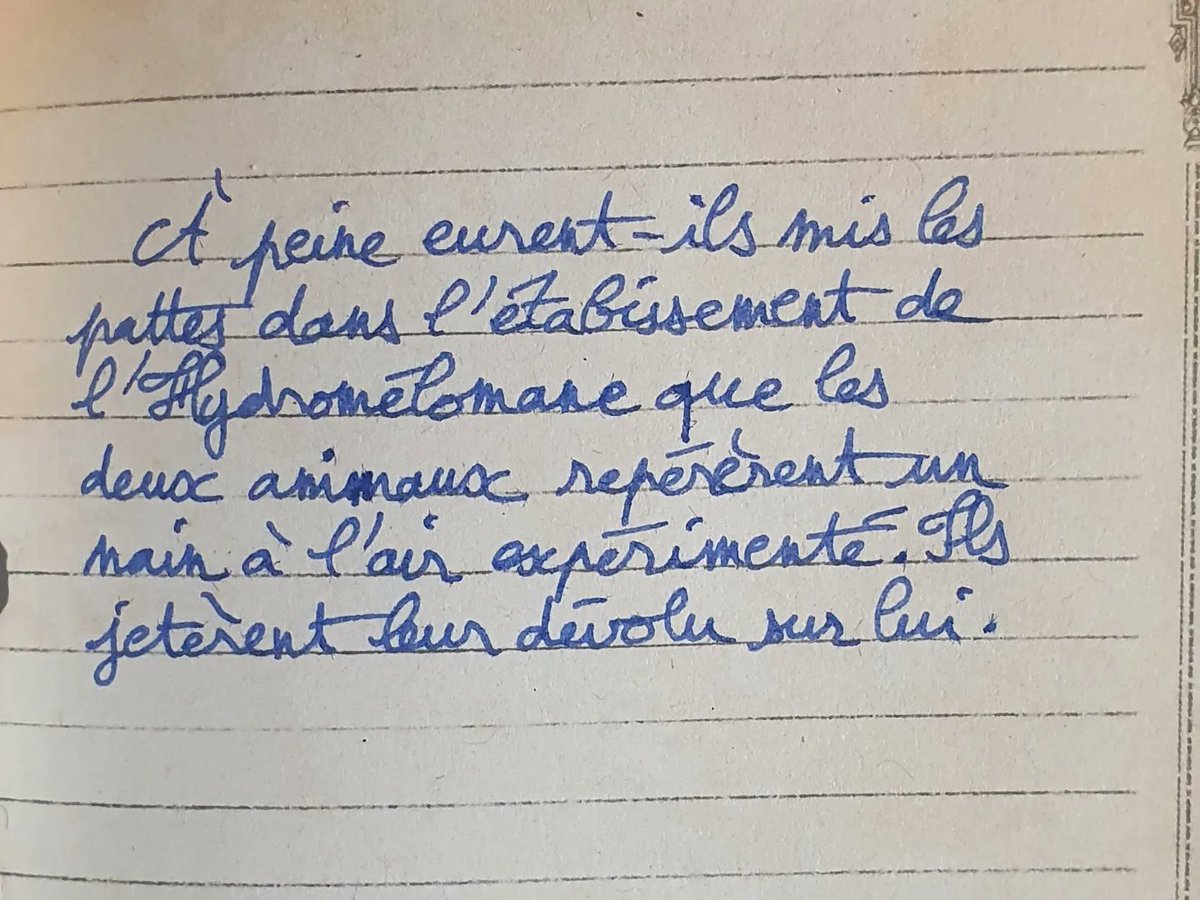 À peine eurent-ils mis les
pattes dans l'étabissement de
l'Hydromélomane que les
deux animaux repérèrent un
nain à l'air expérimenté. Ils
jetèrent leur dévolu sur lui.